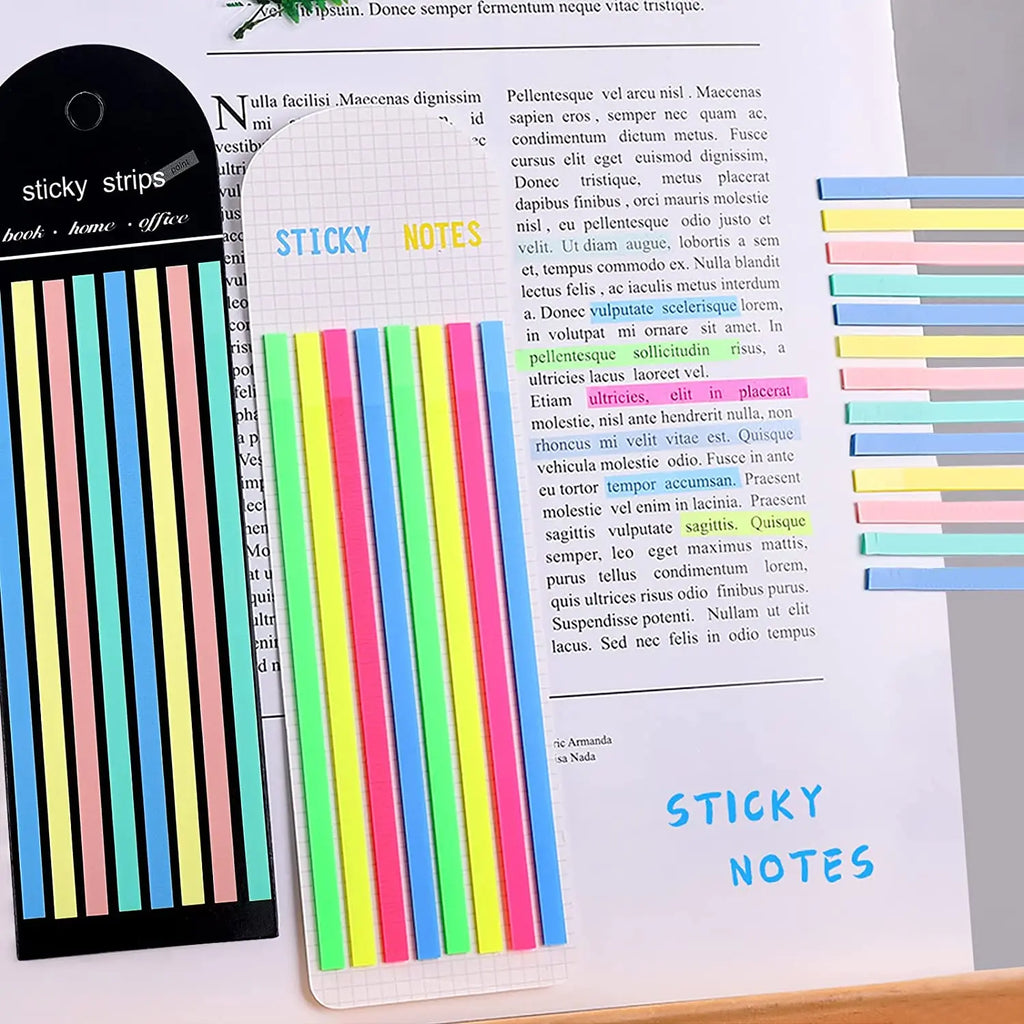 vel ipsum. Donec semper fermentum neque vitae tristique.
sticky strips
point
book · home · office
STICKY NOTES
Nulla facilisi .Maecenas dignissim
mi
id
Pellentesque vel arcu nisl . Maecenas
sapien eros , semper nec quam ac,
condimentum dictum metus. Fusce
cursus elit eget euismod dignissim,
Donec tristique, metus placerat
dapibus finibus , orci mauris molestie
nisl , eu pellentesque odio justo et
velit. Ut diam augue, lobortis a sem
et, tempus commodo ex. Nulla blandit
lectus felis , ac iaculis metus interdum
a. Donec vulputate scelerisque lorem,
in volutpat mi ornare sit amet. In
pellentesque sollicitudin risus, a
ultricies lacus laoreet vel.
Etiam ultricies, elit in placerat
molestie, nisl ante hendrerit nulla, non
rhoncus mi velit vitae est. Quisque
vehicula molestie odio. Fusce in ante
eu tortor tempor accumsan. Praesent
molestie vel enim in lacinia. Praesent
sagittis vulputate sagittis. Quisque
semper, leo eget maximus mattis,
purus tellus condimentum lorem,
quis ultrices risus odio finibus purus.
Suspendisse potenti. Nullam ut elit
lacus. Sed nec felis in odio tempus
ric Armanda
isa Nada
STICKY
NOTES